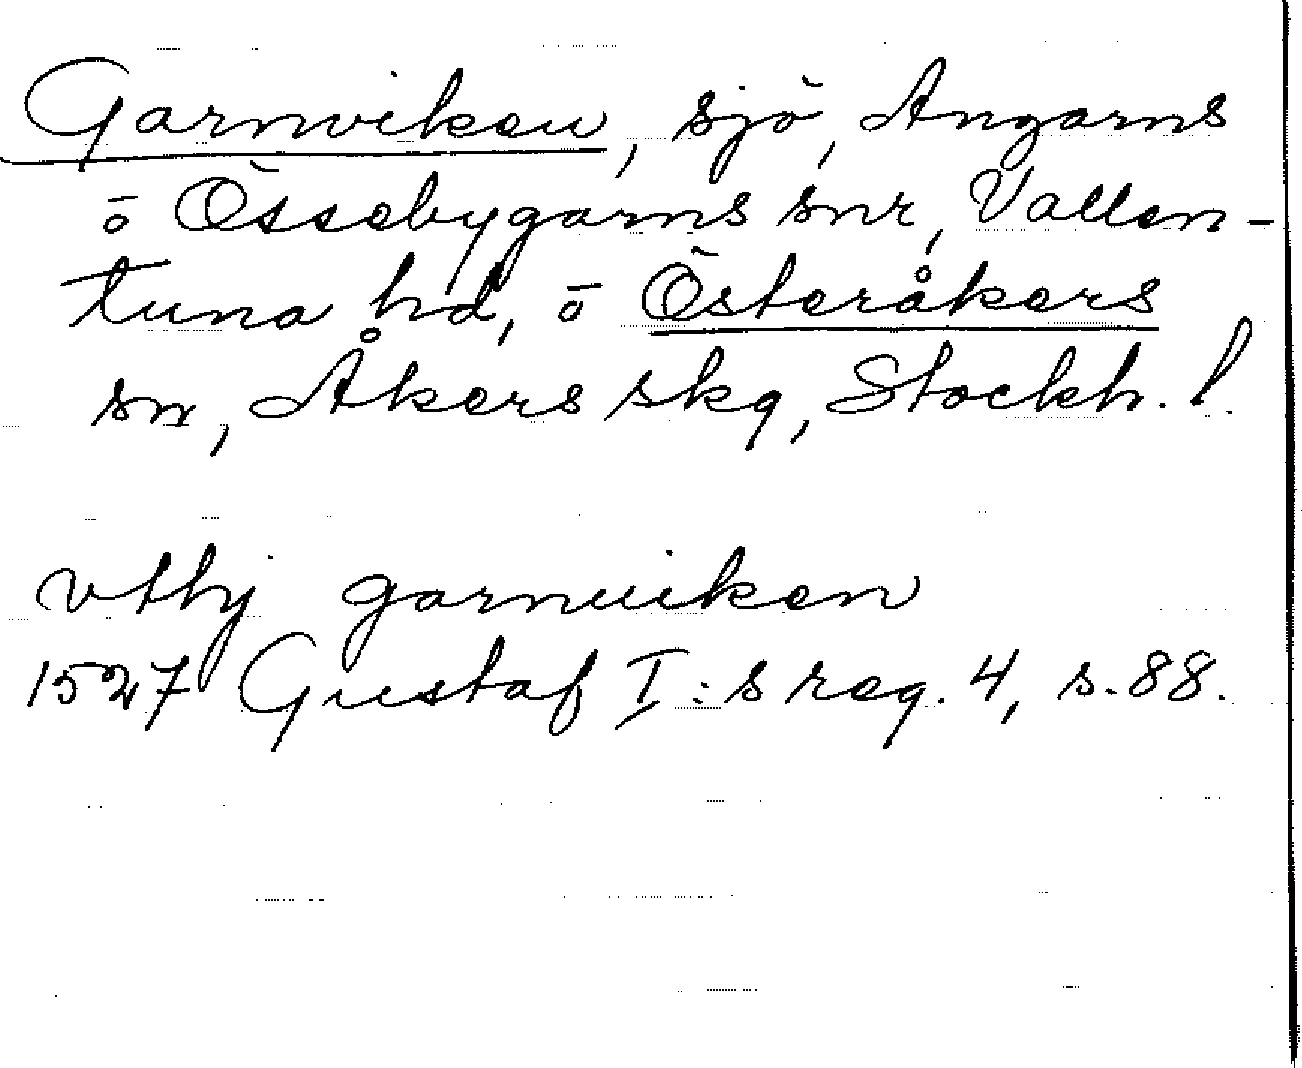 Garnviken, sjö, Angarns
o Össebygarns snr, Vallen-
tuna hd, o Österåkers
sn, Åkers skg, Stockh. l.
vthj garnuiken
1527 Gustaf I:s reg. 4, s. 88.